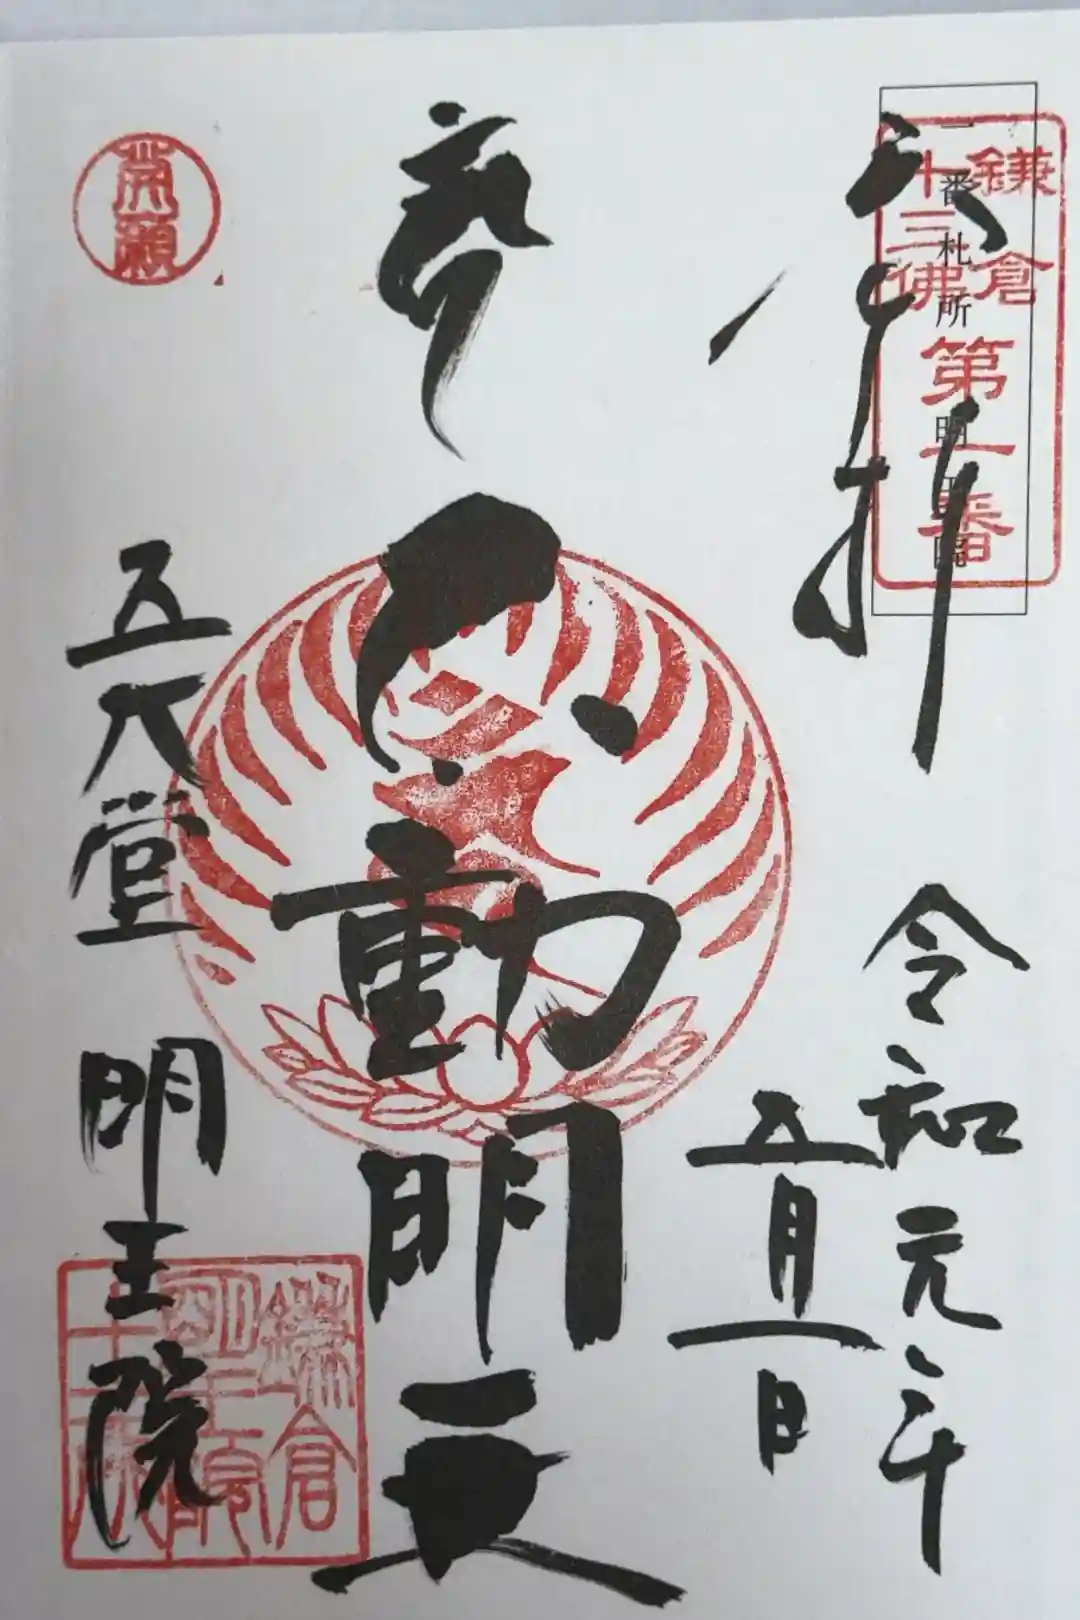 奉拝
令和元年
五月一日
一番札所
明王院
鎌倉
十三佛
第一番
不動明王
五大堂
明王院
鎌倉
明王院